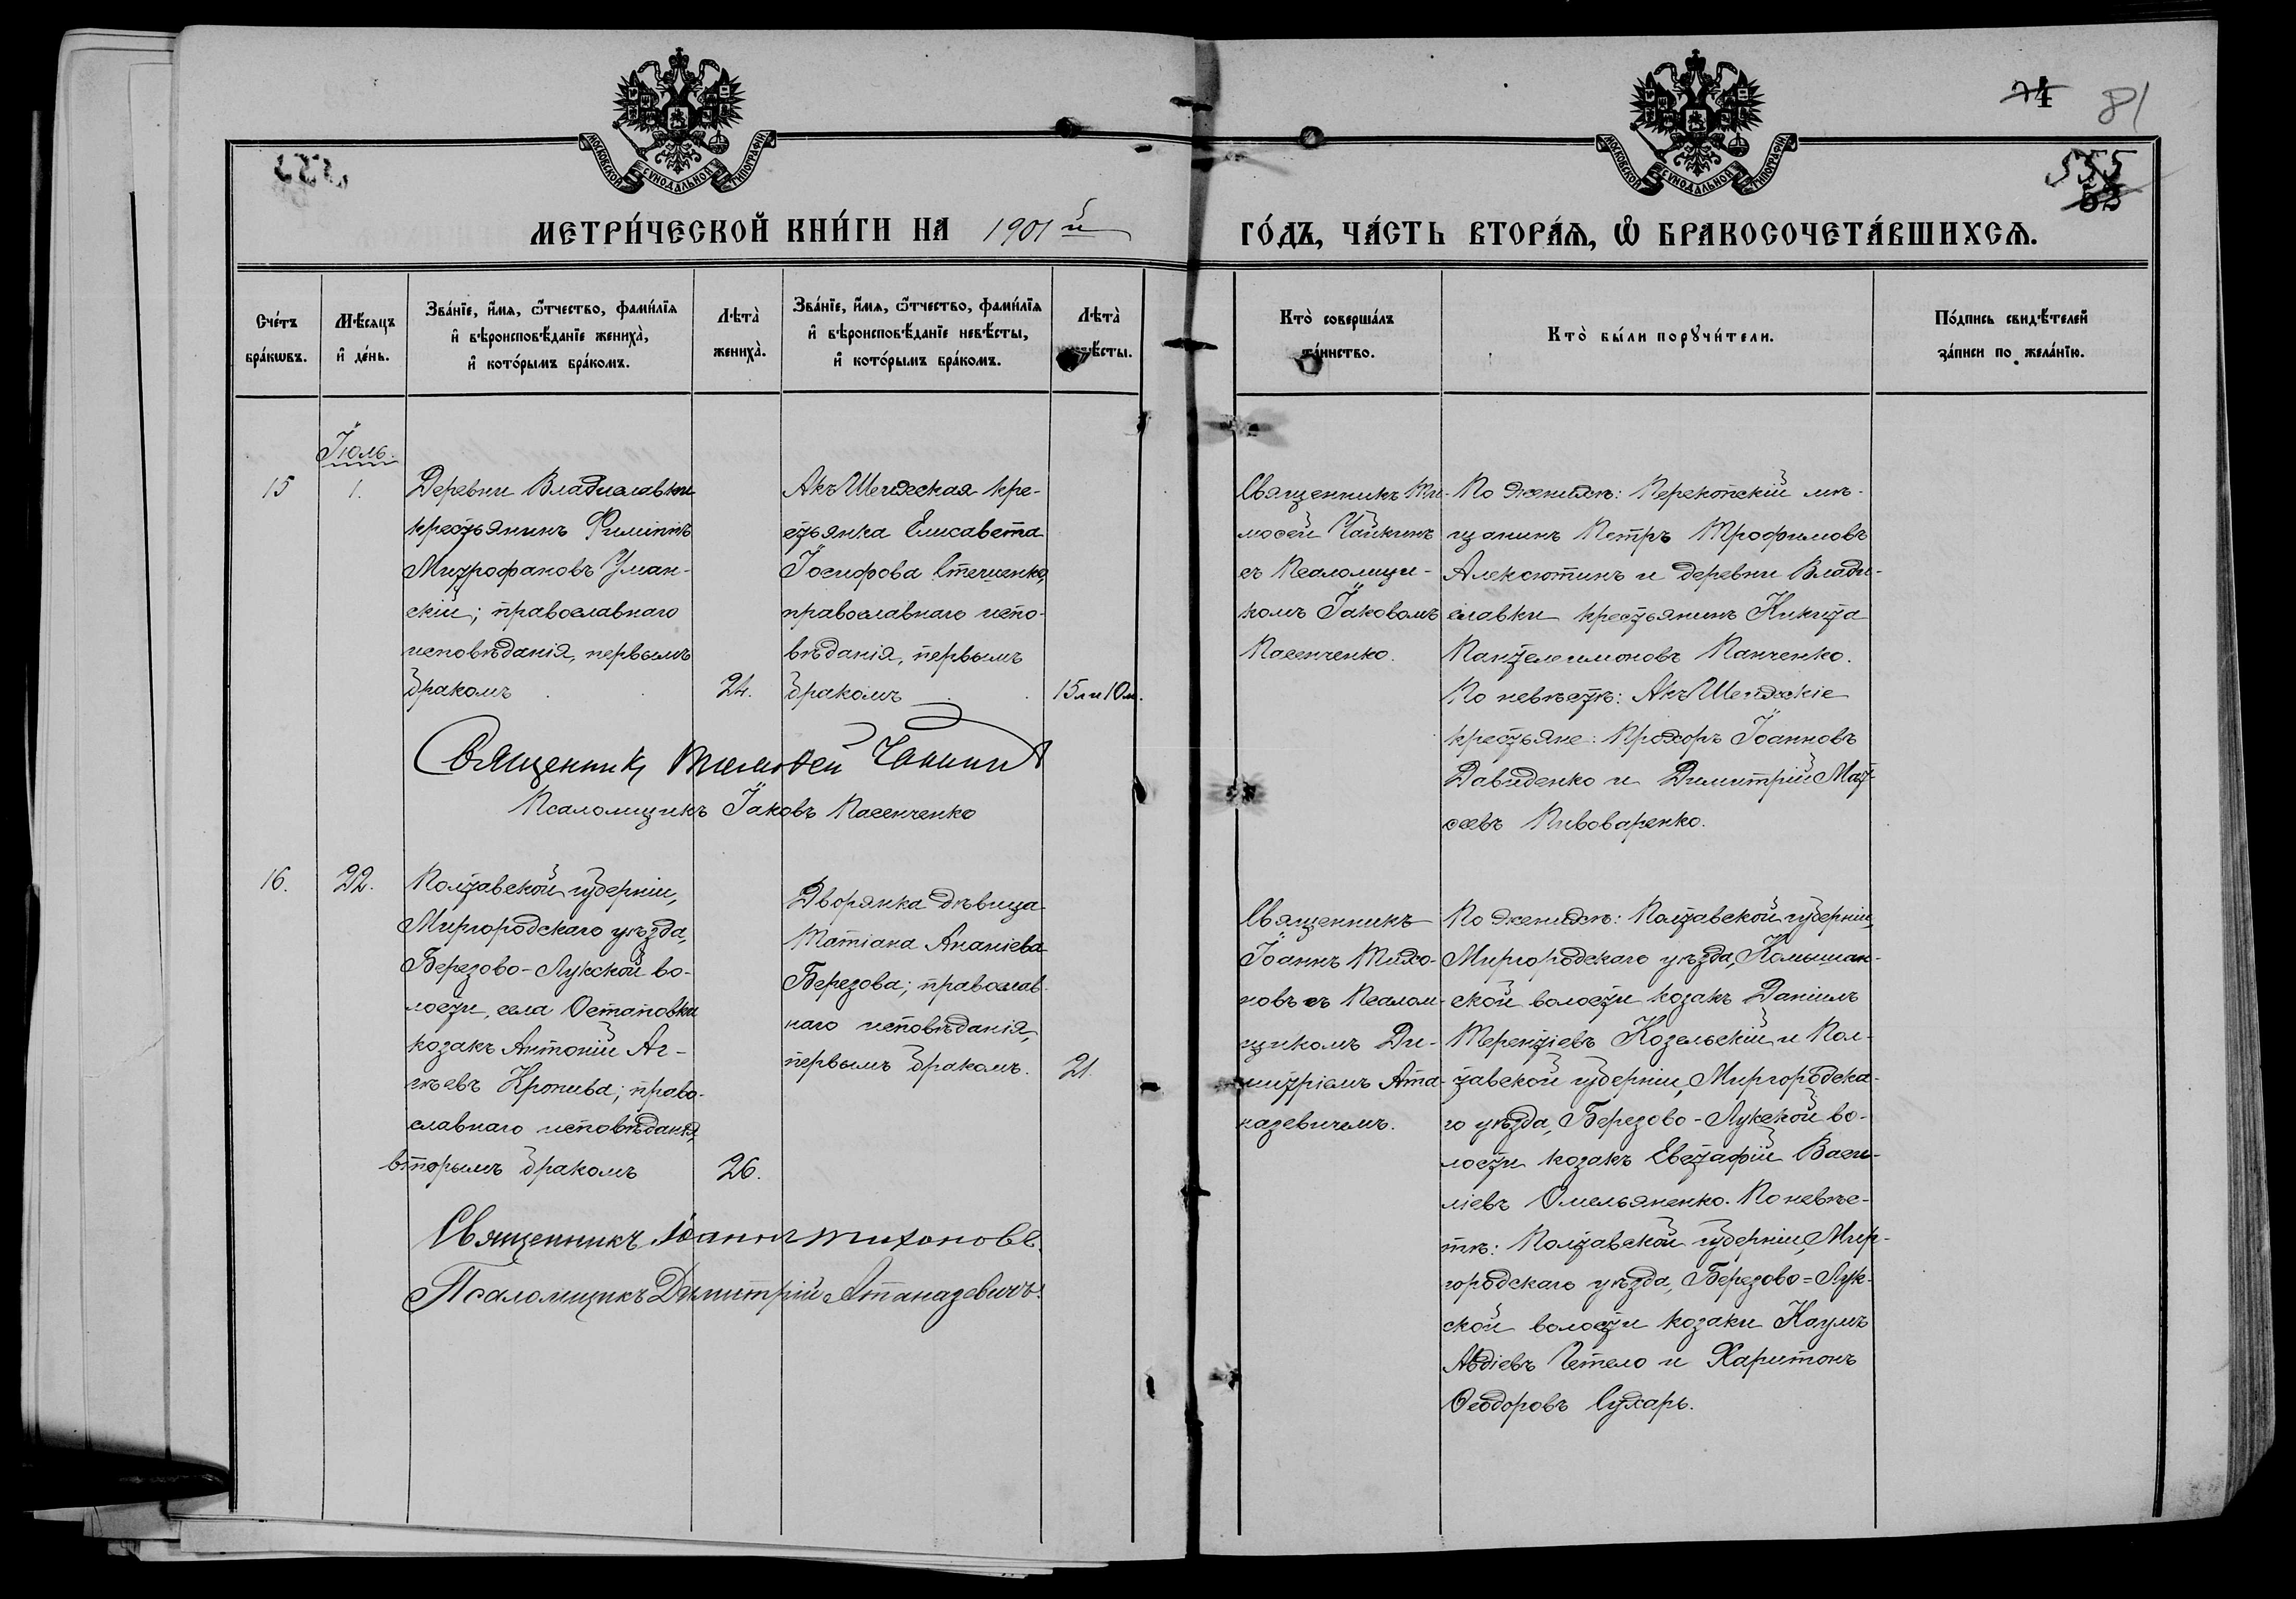 МОСКОВСКОЙ СѴНОДАЛЬНОЙ ТИПОГРАФІИ
МОСКОВСКОЙ СѴНОДАЛЬНОЙ ТИПОГРАФІИ
81
555
МЕТРИ́ЧЕСКОЙ КНИ́ГИ НА 1901й ГО́ДЪ, ЧА́СТЬ ВТОРА́Ѧ, Ѽ БРАКОСОЧЕТА́ВШИХСѦ.
Сче́тъ бра́кѡвъ.
Мѣ́сяцъ и҆ де́нь.
Зва́нїе, и҆́мѧ, ѻ҆́тчество, фами́лїѧ
и҆ вѣроисповѣ́данїе жениха̀,
и҆ кото́рымъ бра́комъ.
Лѣта̀ жениха̀.
Зва́нїе, и҆́мѧ, ѻ҆́тчество, фами́лїѧ
и҆ вѣроисповѣ́данїе невѣ́сты,
и҆ кото́рымъ бра́комъ.
Лѣта̀ невѣ́сты.
Кто̀ соверша́лъ та́инство.
Кто̀ бы́ли порꙋчи́тели.
По́дпись свидѣ́телей за́писи по жела́нїю.
Іюль.
15
1.
Деревни Владиславки
крестьянинъ Филиппъ
Митрофановъ Уман-
скій; православнаго
исповѣданія, первымъ
бракомъ
24.
Акъ Шеихская кре-
стьянка Елисавета
Іосифова Стеценко,
православнаго испо-
вѣданія, первымъ
бракомъ
15 л и 10 м.
Священникъ Ти-
мофей Чайкинъ
съ Псаломщи-
комъ Іаковомъ
Пасенченко.
По женихѣ: Перекопскій мѣ-
щанинъ Петръ Трофимовъ
Алексютинъ и деревни Влади-
славки крестьянинъ Никита
Пантелеимоновъ Панченко.
По невѣстѣ: Акъ Шеихскіе
крестьяне: Прохоръ Іоанновъ
Давиденко и Димитрій Мат-
ѳеевъ Пивоваренко.
Священникъ Тимофей Чайкинъ
Псаломщикъ Іаковъ Пасенченко
16.
22.
Полтавской губерніи,
Миргородскаго уѣзда,
Березово-Лукской во-
лости, села Остаповки
козакъ Антоній Аг-
ѣевъ Кропива; право-
славнаго исповѣданія,
вторымъ бракомъ
26.
Дворянка дѣвица
Татіана Ананіева
Березова; православ-
наго исповѣданія,
первымъ бракомъ.
21.
Священникъ
Іоаннъ Тихо-
новъ съ Псалом-
щикомъ Ди-
митріемъ Ата-
назевичемъ.
По женихѣ: Полтавской губерніи,
Миргородскаго уѣзда, Комышан-
ской волости козакъ Даніилъ
Терентіевъ Козельскій и Пол-
тавской губерніи, Миргородска-
го уѣзда, Березово-Лукской во-
лости козакъ Евстафій Васи-
ліевъ Омельяненко. По невѣс-
тѣ: Полтавской губерніи, Мир-
городскаго уѣзда, Березово=Лук-
ской волости козаки Наумъ
Авдіевъ Четело и Харитонъ
Ѳеодоровъ Сухарь.
Священникъ Іоаннъ Тихоновъ.
Псаломщикъ Димитрій Атаназевичъ.